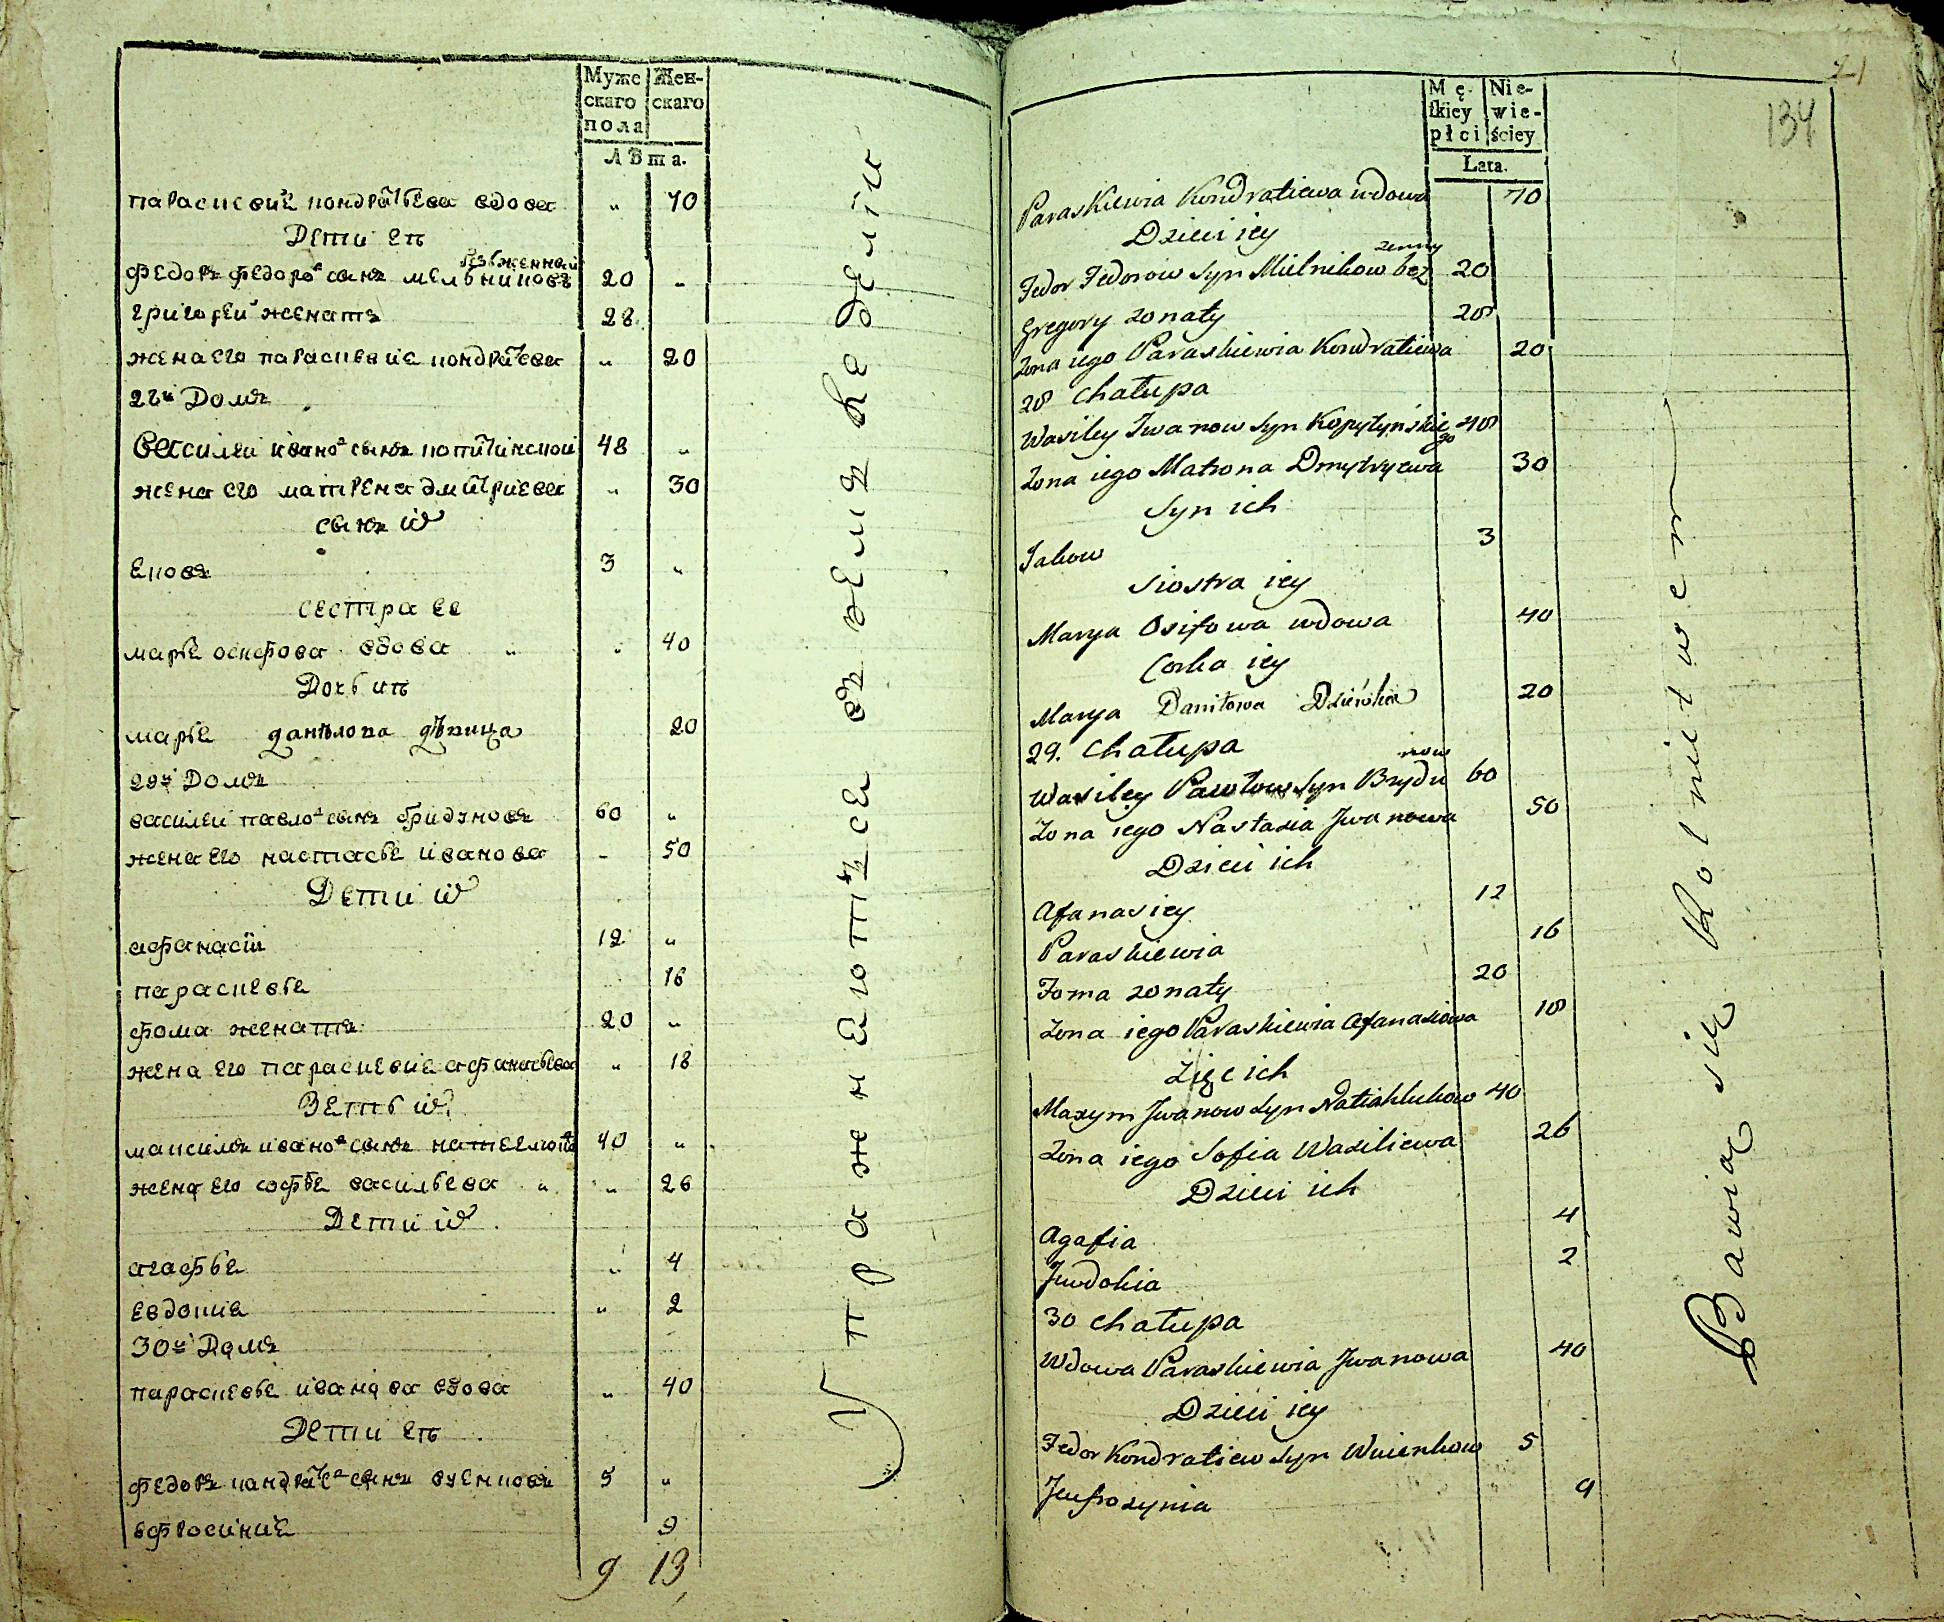 Муже Жен-
скаго скаго
пола
Лѣта.
параскевиѣ кондратьева вдова " 70
Дети еѣ
безженной
федоръ федоровъ сынъ мельниковъ 20 "
григорей женатъ 28
жена его параскевиѣ кондратьева " 20
28й Домъ
василей ивановъ сынъ копитинской 48 "
жена его матрена дмитриева " 30
сынъ их
ековъ 3 "
сестра ее
марьѣ осифова вдова " " 40
Дочь иѣ
марьѣ данилова дѣвица 20
29й Домъ
василей павловъ сынъ бридуновъ 60 "
жена его настасьѣ иванова - 50
Дети их
афанасій 12 "
параскевьѣ 16
фома женатъ 20 "
жена его параскевиѣ афанасьева " 18
Зеть их
максимъ ивановъ сынъ 40 "
жена его софьѣ васильева " " 26
Дети их
агафьѣ " 4
евдокиѣ " 2
30й Домъ
параскевьѣ иванова вдова " 40
Дети еѣ
федоръ кандратьевъ сынъ вуенковъ 5 "
ефросиниѣ 9
9 13
Упражнеются въ земледелии
21
134
Mę- Nie-
skiey wie-
płci ściey
Lata.
Paraskiewia Kondratiewa wdowa 70
Dzieci iey
zenny
Fedor Fedorow syn Mielnikow bez 20
Gregory zonaty 28
Zona iego Paraskiewia Kondratiewa 20
28 Chałupa
Wasiley Jwanow syn Kopytyńskie 48
go
Zona iego Matrona Dmytryewa 30
Syn ich
Jakow 3
Siostra iey
Marya Osifowa wdowa 40
Corka iey
Marya Daniłowa Dziewka 20
29. Chałupa
now
Wasiley Pawłow syn Brydu 60
Zona iego Nastazia Jwanowa 50
Dzieci ich
Afanasiey 12
Paraskiewia 16
Foma zonaty 20
Zona iego Paraskiewia Afanasiowa 18
Zięc ich
Maxym Jwanow syn 40
Zona iego Sofia Wasiliewa 26
Dzieci ich
Agafia 4
Jewdokia 2
30 Chałupa
Wdowa Paraskiewia Jwanowa 40
Dzieci iey
Fedor Kondratiew syn Wuienkow 5
Jeufrozynia 9
Bawią się Rolnictwem